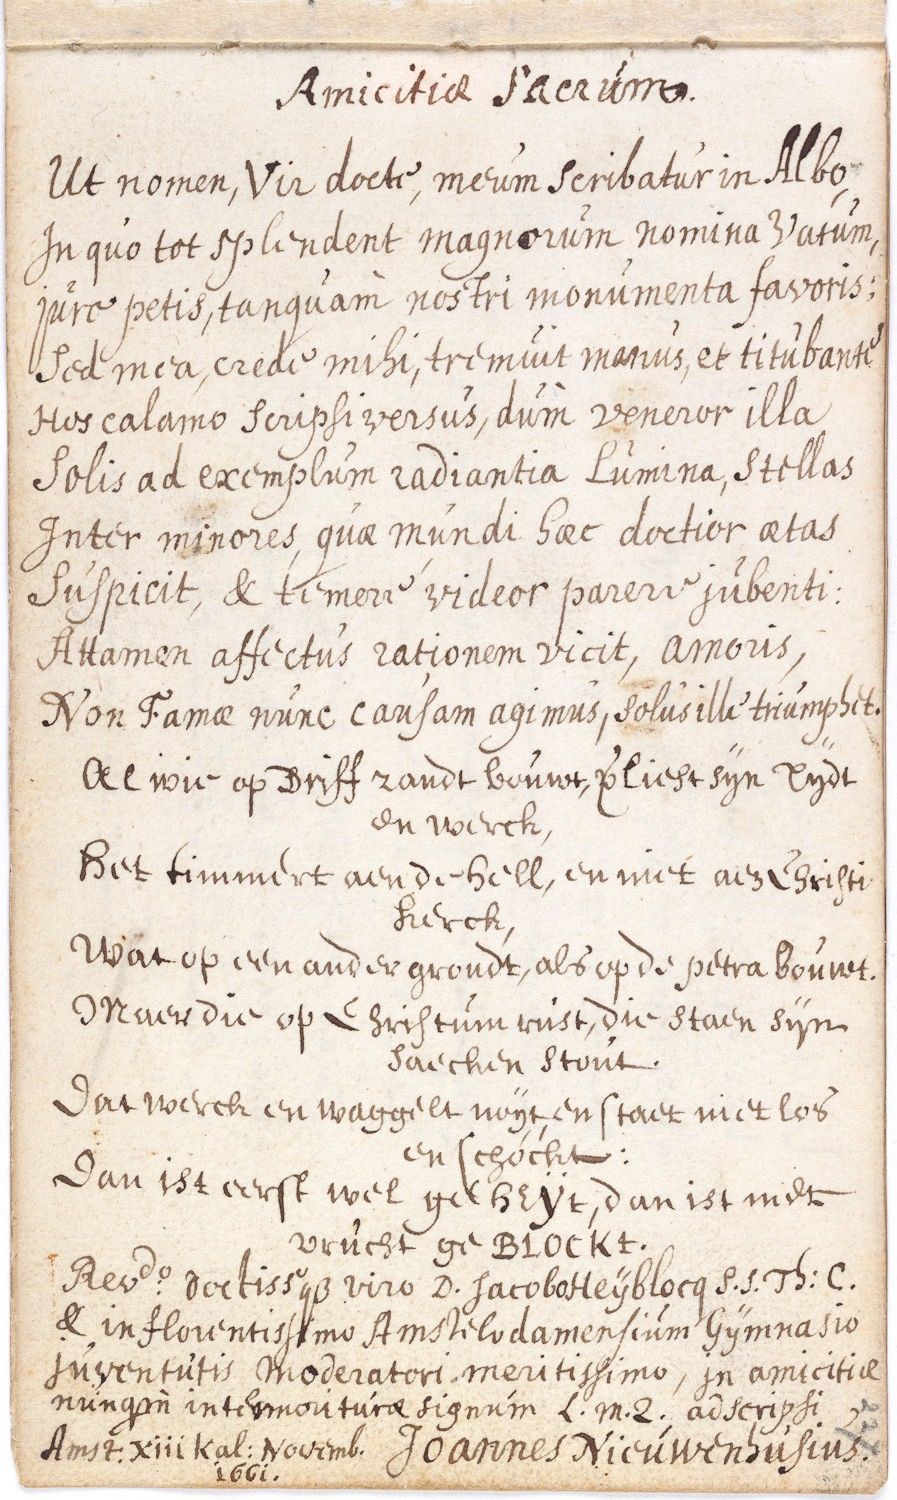 Amicitiæ Sacrum.
Ut nomen, Vir docte, meum scribatur in Albo,
In quo tot splendent magnorum nomina Vatum,
jure petis, tanquam nostri monumenta favoris;
Sed mea, crede mihi, tremuit manus, et titubante
Hos calamo scripsi versus, dum veneror illa
Solis ad exemplum radiantia Lumina, Stellas
Inter minores, quæ mundi hæc doctior ætas
Suspicit, & temere videor parere jubenti:
Attamen affectus rationem vicit, amoris,
Non Famæ nunc causam agimus, solus ille triumphet.
Al wie op Driff zandt bouwt, verliest syn tÿdt
en werck,
Het timmert aen de hell, en niet aen Christi
kerck,
Wat op een ander grondt, als op de petra bouwt.
Maer die op Christum rust, die staen syn
saecken stout.
Dat werck en waggelt nöyt, en staet niet los
en schöckt:
Dan ist eerst wel geHEŸt, dan ist met
vrucht geBLOCKt.
Revdo. doctissqȝ viro D. Jacobo Heÿblocq S.S. Th: C.
& in florentissimo Amstelodamensium Gÿmnasio
juventutis Moderatori meritissimo, in amicitiæ
nunqm intermorituræ signum L. m.q. adscripsi
Amst. XIII Kal: Novemb. Joannes Nieuwenhusius.
1661.